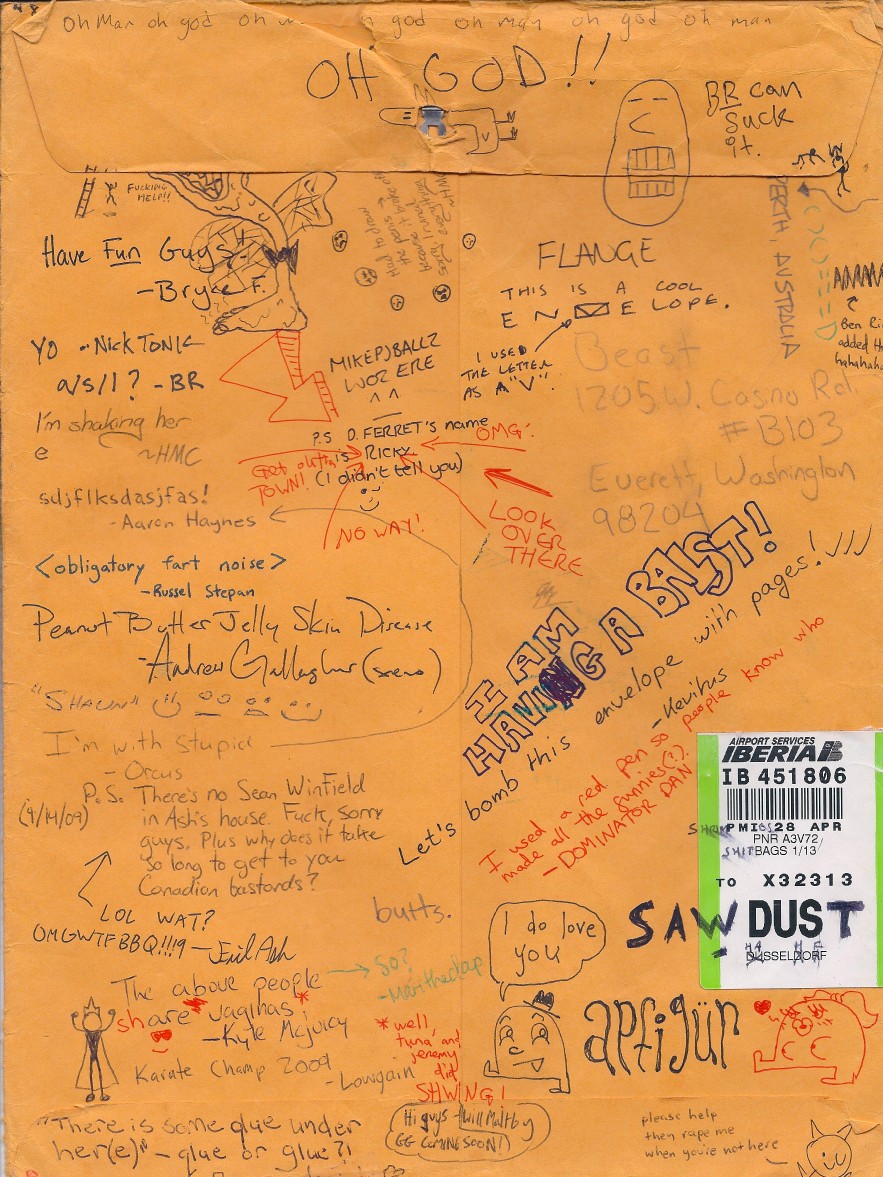 Oh Man oh god oh man oh god oh man oh god oh man
OH GOD!!
BR can
suck
it.
FUCKING
HELP!!
PERTH, AUSTRALIA
Have Fun Guys!
-Bryce F.
Had to draw
the penis
because it broke off
FLANGE
THIS IS A COOL
EN✉ELOPE.
I USED
THE LETTER
AS A "V".
Ben Ri
added th
hahahaha
YO -NICK TONIC
a/s/l? -BR
MIKEPJBALLZ
WOZ ERE
^^
Beast
1205 W. Casino Rd.
#B103
Everett, Washington
98204
I'm shaking her
e ~HMC
P.S D. FERRET'S name
is RICKY
(I didn't tell you)
OMG!
Get outta
TOWN!
NO WAY!
LOOK
OVER
THERE
sdjflksdasjfas!
- Aaron Haynes
<obligatory fart noise>
-Russel Stepan
Peanut Butter Jelly Skin Disease
-Andrew Gallagher (sneno)
"SHAUN"
I'm with stupid
- Orcus
P.S. There's no Sean Winfield
(9/14/09) in Ash's house. Fuck, sorry
guys. Plus why does it take
so long to get to you
Canadian bastards?
I AM
HAVING A BALST!
Let's bomb this envelope with pages!
-Kevitus
I used a red pen so people know who
made all the funnies(?).
-DOMINATOR DAN
AIRPORT SERVICES
IBERIA
IB 451806
PMI 28 APR
PNR A3V72
SHITBAGS 1/13
TO X32313
SAWDUST
DUSSELDORF
LOL WAT?
OMGWTFBBQ!!!9 -Jeril Ash
butts.
I do love
you
The above people
share vaginas*
-Kyle McJuicy
So?
*well,
tuna and
jeremy
did
SHWING!
apfigür
Karate Champ 2009
-Lowgain
Hi guys -Will Maltby
(GG COMING SOON!)
"There is some glue under
her(e)" - glue or glue?!
please help
then rape me
when you're not here